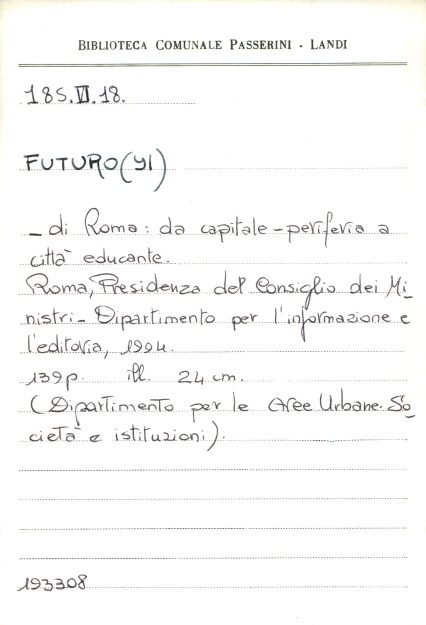 BIBLIOTECA COMUNALE PASSERINI - LANDI
185.VI.18.
FUTURO(yl)
_ di Roma: da capitale-periferia a
città educante.
Roma, Presidenza del Consiglio dei Mi_
nistri - Dipartimento per l'informazione e
l'editoria, 1994.
139p. ill. 24 cm.
(Dipartimento per le Aree Urbane. So_
cietà e istituzioni).
193308